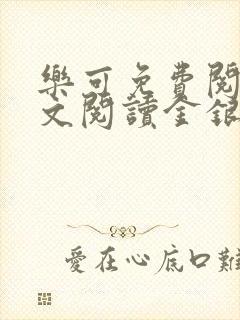 樂可免費閱
文閱讀金銀
愛在心底口難